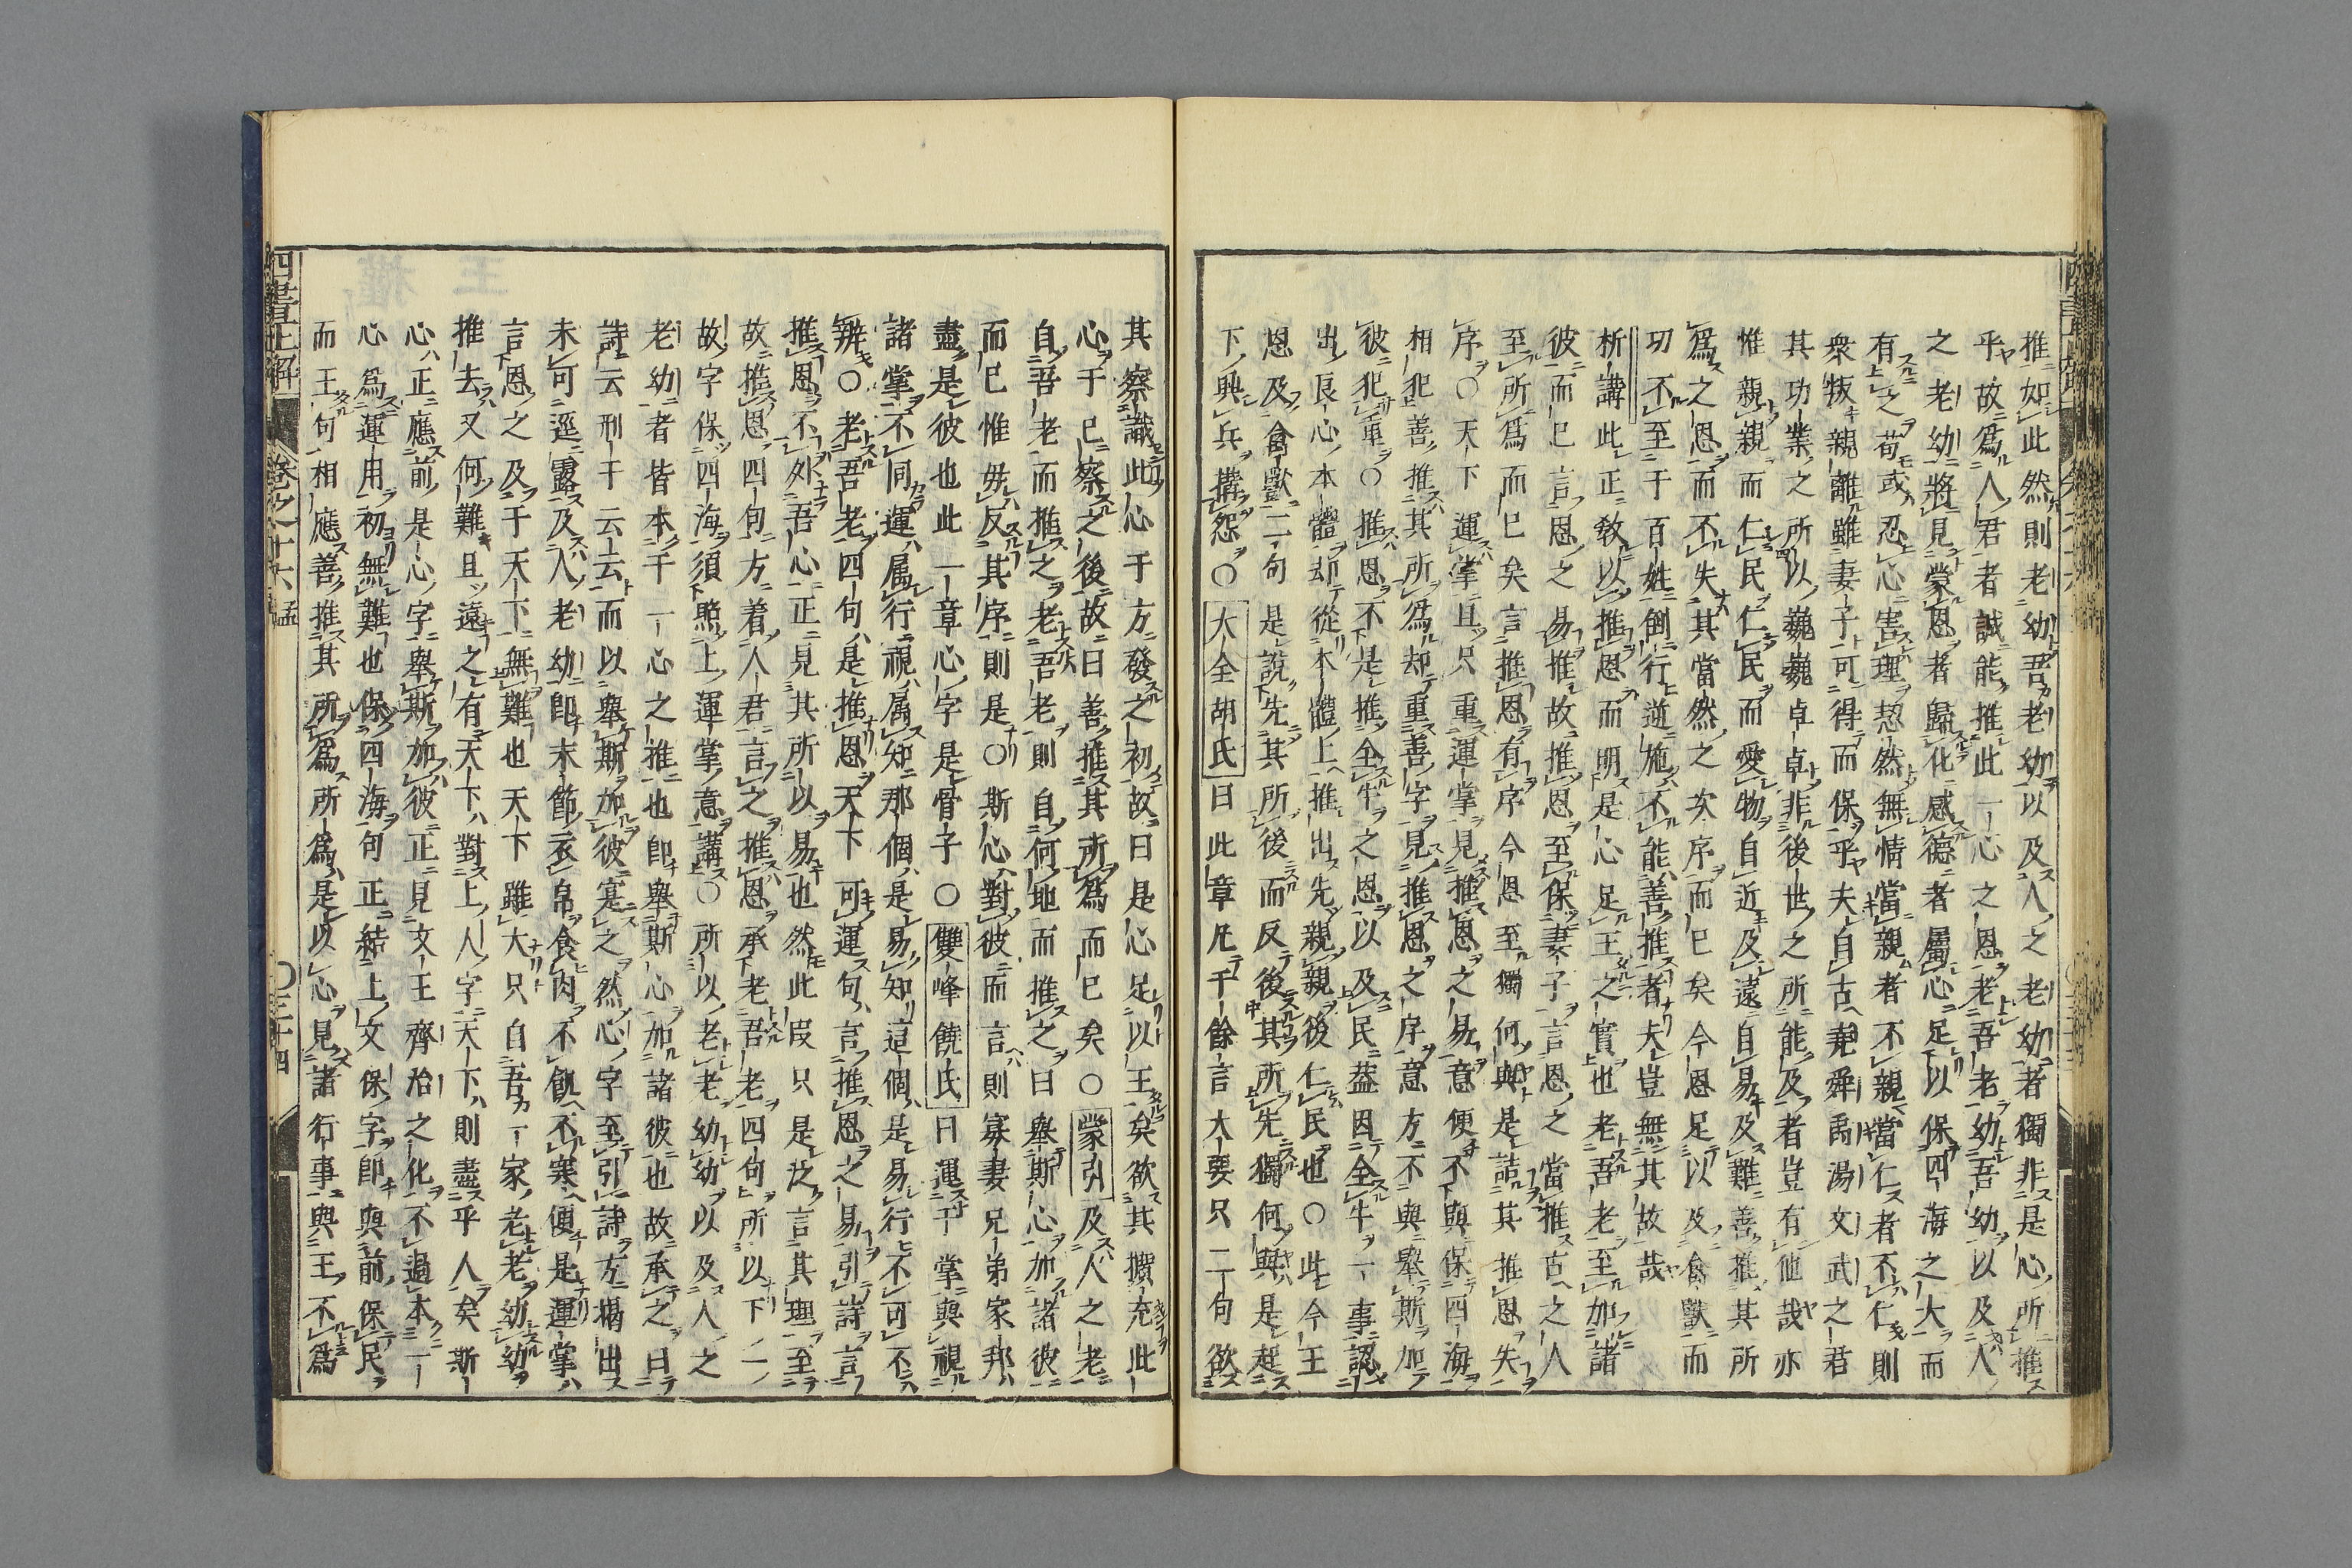 推如此然則老幼吾老幼以及人之老幼者獨非是心所推
乎故爲人君者誠能推此一心之恩老吾老幼吾幼以及人
之老幼將見蒙恩者歸化感德者屬心足以保四海之大而
有之苟或忍心害理恝然無情當親者不親當仁者不仁則
衆叛親離雖妻子可得而保乎夫自古堯舜禹湯文武之君
其功業之所以巍巍卓卓非後世之所能及者豈有他哉亦
惟親親而仁民仁民而愛物自近及遠自易及難善推其所
爲之恩而不失其當然之次序而已矣今恩足以及禽獸而
功不至于百姓倒行逆施不能善推者夫豈無其故哉
析講此正教以推恩而明是心足王之實也老吾老至加諸
彼而已言恩之易推故推恩至保妻子言恩之當推古之人
至所爲而已矣言推恩有序今恩至獨何與是詰其推恩失
序○天下運掌且只重運掌見推恩之易意便不與保四海
相犯善推其所爲却重善字見推恩之序意方不與舉斯加
彼犯重○推恩不是推全牛之恩以及民葢因全牛一事認
出良心本體却從本體上推出先親親後仁民也○此今王
恩及禽獸二句是說先其所後而反後其所先獨何與是起
下興兵搆怨○大全胡氏曰此章凡千餘言大要只二句欲
其察識此心于方發之初故曰是心足以王矣欲其擴充此
心于已察之後故曰善推其所爲而已矣○蒙引及人之老
自吾老而推之老吾老則自何地而推之曰舉斯心加諸彼
而已惟毋反其序則是○斯心對彼而言則寡妻兄弟家邦
盡是彼也此一章心字是骨子○雙峰饒氏曰運于掌與視
諸掌不同運屬行視屬知那個是易知這個是易行不可不
辨○老吾老四句是推恩天下可運句言推恩之易引詩言
推恩不外吾心正見其所以易也然此叚只是泛言其理至
故推恩四句方着人君言之推恩承老吾老四句所以下一
故字保四海須照上運掌意講○所以老老幼幼以及人之
老幼者皆本于一心之推也卽舉斯心加諸彼也故承之曰
詩云刑于云云而以舉斯加彼寔之然心字至引詩方揭出
未可逕露及人老幼卽末節衣帛食肉不飢不寒便是運掌
言恩之及于天下無難也天下雖大只自吾一家老老幼幼
推去又何難且遠之有天下對上人字天下則盡乎人矣斯
心正應前是心字舉斯加彼正見文王齊治之化不過本一
心爲運用初無難也保四海句正結上文保字卽與前保民
而王句相應善推其所爲所爲是以心見諸行事與王不爲
四書正解
卷之十六孟
○三十四